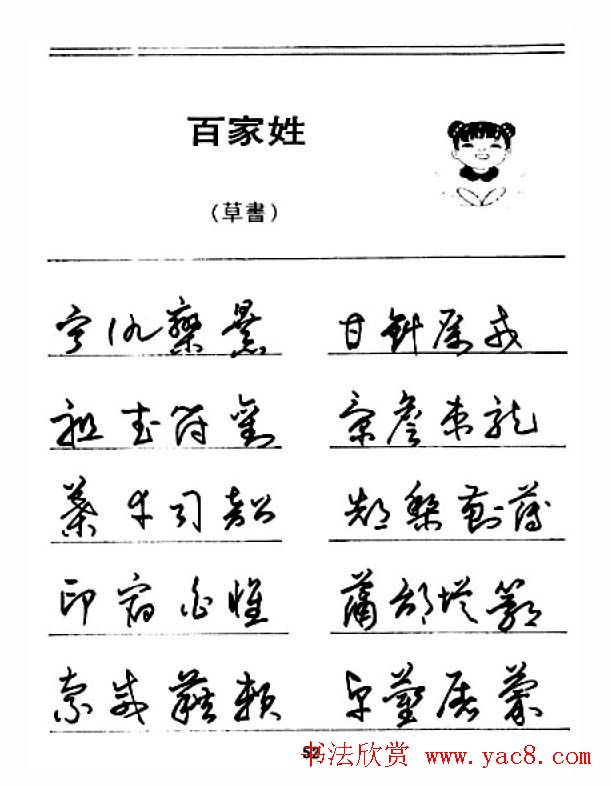 百家姓
(草書)
宁仇欒暴 甘鈄厲戎
祖武符劉 景詹束龍
葉幸司韶 郜黎薊薄
印宿白懷 蒲邰從鄂
索咸籍賴 卓藺屠蒙
52
书法欣赏 www.yac8.com